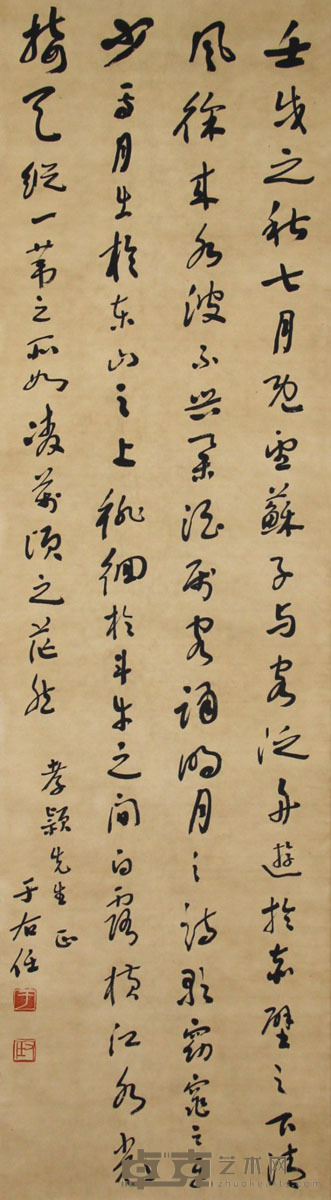 壬戌之秋七月既望蘇子与客泛舟遊於赤壁之下清
風徐来水波不興举酒属客誦明月之詩歌窈窕之章
少焉月出於东山之上徘徊於斗牛之间白露横江水光
接天縱一葦之所如凌萬頃之茫然
孝颖先生正
于右任
卓克艺术网